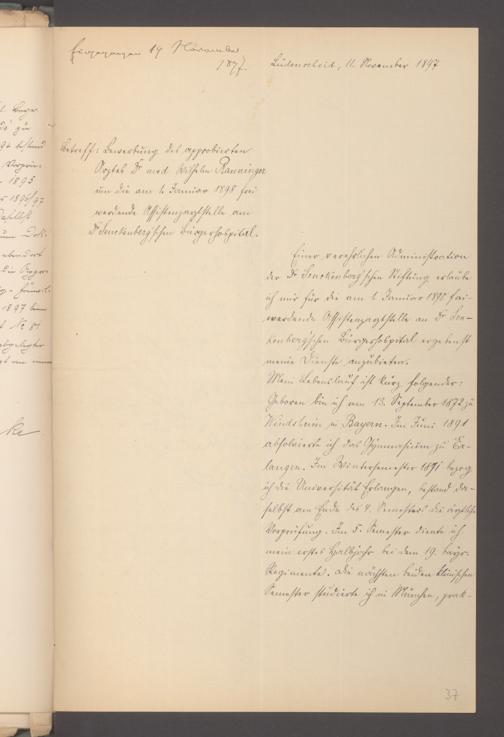 Eingegangen 14 November
1897.
Lüdenscheid, 11. November 1897
Betreff: Bewerbung des approbierten
Arztes Dr med Wilhelm Ranninger
um die am 1. Januar 1898 frei
werdende Assistenzarztstelle am
Dr Senckenberg'schen Bürgerhospital.
Einer verehrlichen Administration
der Dr. Senckenberg'schen Stiftung erlaube
ich mir für die am 1. Januar 1898 frei
werdende Assistenzarztstelle am Dr Sen-
kenberg'schen Bürgerhospital ergebenst
meine Dienste anzubieten.
Mein Lebenslauf ist kurz folgender:
Geboren bin ich am 13. September 1872 zu
Windsheim in Bayern. Im Juni 1891
absolvierte ich das Gymnasium zu Er-
langen. Im Wintersemester 1891 bezog
ich die Universität Erlangen, bestand da-
selbst am Ende des 4. Semesters die ärztliche
Vorprüfung. Im 5. Semester diente ich
mein erstes Halbjahr bei dem 19. bayr.
Regimente. Die nächsten beiden klinischen
Semester studierte ich in München, prak-
37